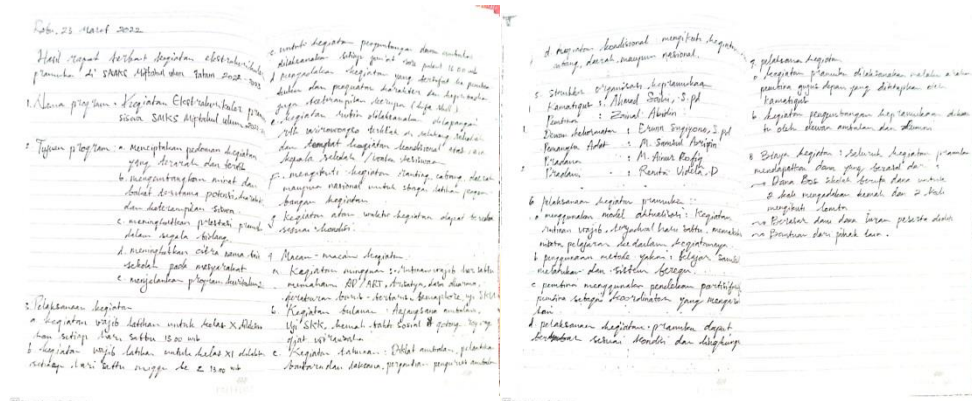 Rabu, 23 Maret 2022
Hasil rapat terkait kegiatan ekstrakurikuler
pramuka di SMKS Miftahul ulum Tahun 2022-2023
1. Nama program : Kegiatan Ekstrakurikuler pramuka
siswa SMKS Miftahul ulum
2. Tujuan program : a. menciptakan pedoman kegiatan
yang terarah dan
b. mengembangkan minat dan
bakat terutama potensi, karakter
dan keterampilan siswa.
c. meningkatkan prestasi pramuka
dalam segala bidang
d. meningkatkan citra nama baik
sekolah pada masyarakat
e. menjalankan program kurikulum
3. Pelaksanaan kegiatan
a. kegiatan wajib latihan untuk kelas X
kan setiap hari sabtu 13.00 wib
b. kegiatan wajib latihan untuk kelas XI
setiap hari sabtu minggu ke 2 13.00 wib
c. untuk kegiatan pengembangan dewan ambalan
dilaksanakan setiap jum'at pukul wib
d. pengadaan kegiatan yang bersifat
dan penguatan karakter dan kepramukaan
juga keterampilan berupa (life skill)
e. kegiatan rutin dilaksanakan dilapangan
sekolah
dan tempat kegiatan kondisional
kepala sekolah / waka kesiswaan
f. mengikuti kegiatan ranting, cabang, daerah
maupun nasional untuk sebagai latihan pengem-
bangan kegiatan
g. kegiatan atau waktu kegiatan dapat berubah
sesuai kondisi.
4. Macam-macam kegiatan
a. Kegiatan mingguan : rutinan wajib hari sabtu
memahami AD/ART, trisatya, dasa dharma,
peraturan baris-berbaris, semaphore,
b. Kegiatan bulanan : Anjangsana ambalan,
Uji SKK, kemah bakti sosial gotong royong
giat wirausaha
c. Kegiatan tahunan : Diklat ambalan, pelantikan
bantara dan laksana, pergantian pengurus ambalan
d. kegiatan kondisional : mengikuti kegiatan
cabang, daerah, maupun nasional.
5. Struktur organisasi kepramukaan
Kamabigus : Ahmad, S.pd
Pembina : Zainal Abidin
Dewan kehormatan : Erwin
Pemangku Adat : M. Samsul Arifin
Pradana : M. Ainur Rofiq
Pradani : Renita Videla. D
6. pelaksanaan kegiatan pramuka :
a. menggunakan model aktualisasi : Kegiatan
rutinan wajib, terjadwal hari sabtu, memasukkan
mata pelajaran kedalam kegiatannya
b. penggunaan metode yakni : Belajar sambil
melakukan dan sistem beregu.
c. pembina menggunakan pendekatan partisipasi
pembina sebagai koordinator yang
kan.
d. pelaksanaan kegiatan pramuka dapat
sesuai kondisi dan lingkungan
7. pelaksana kegiatan
a. kegiatan pramuka dilaksanakan melalui arahan
pembina gugus depan yang ditetapkan oleh
kamabigus
b. kegiatan pengembangan kepramukaan dibantu
oleh dewan ambalan dan
8. Biaya kegiatan : seluruh kegiatan pramuka
mendapatkan dana yang berasal dari
Dana Bos sekolah berupa dana untuk
2 kali mengadakan kemah dan 2 kali
mengikuti lomba
Berasal dari dana iuran peserta didik
Bantuan dari pihak lain.